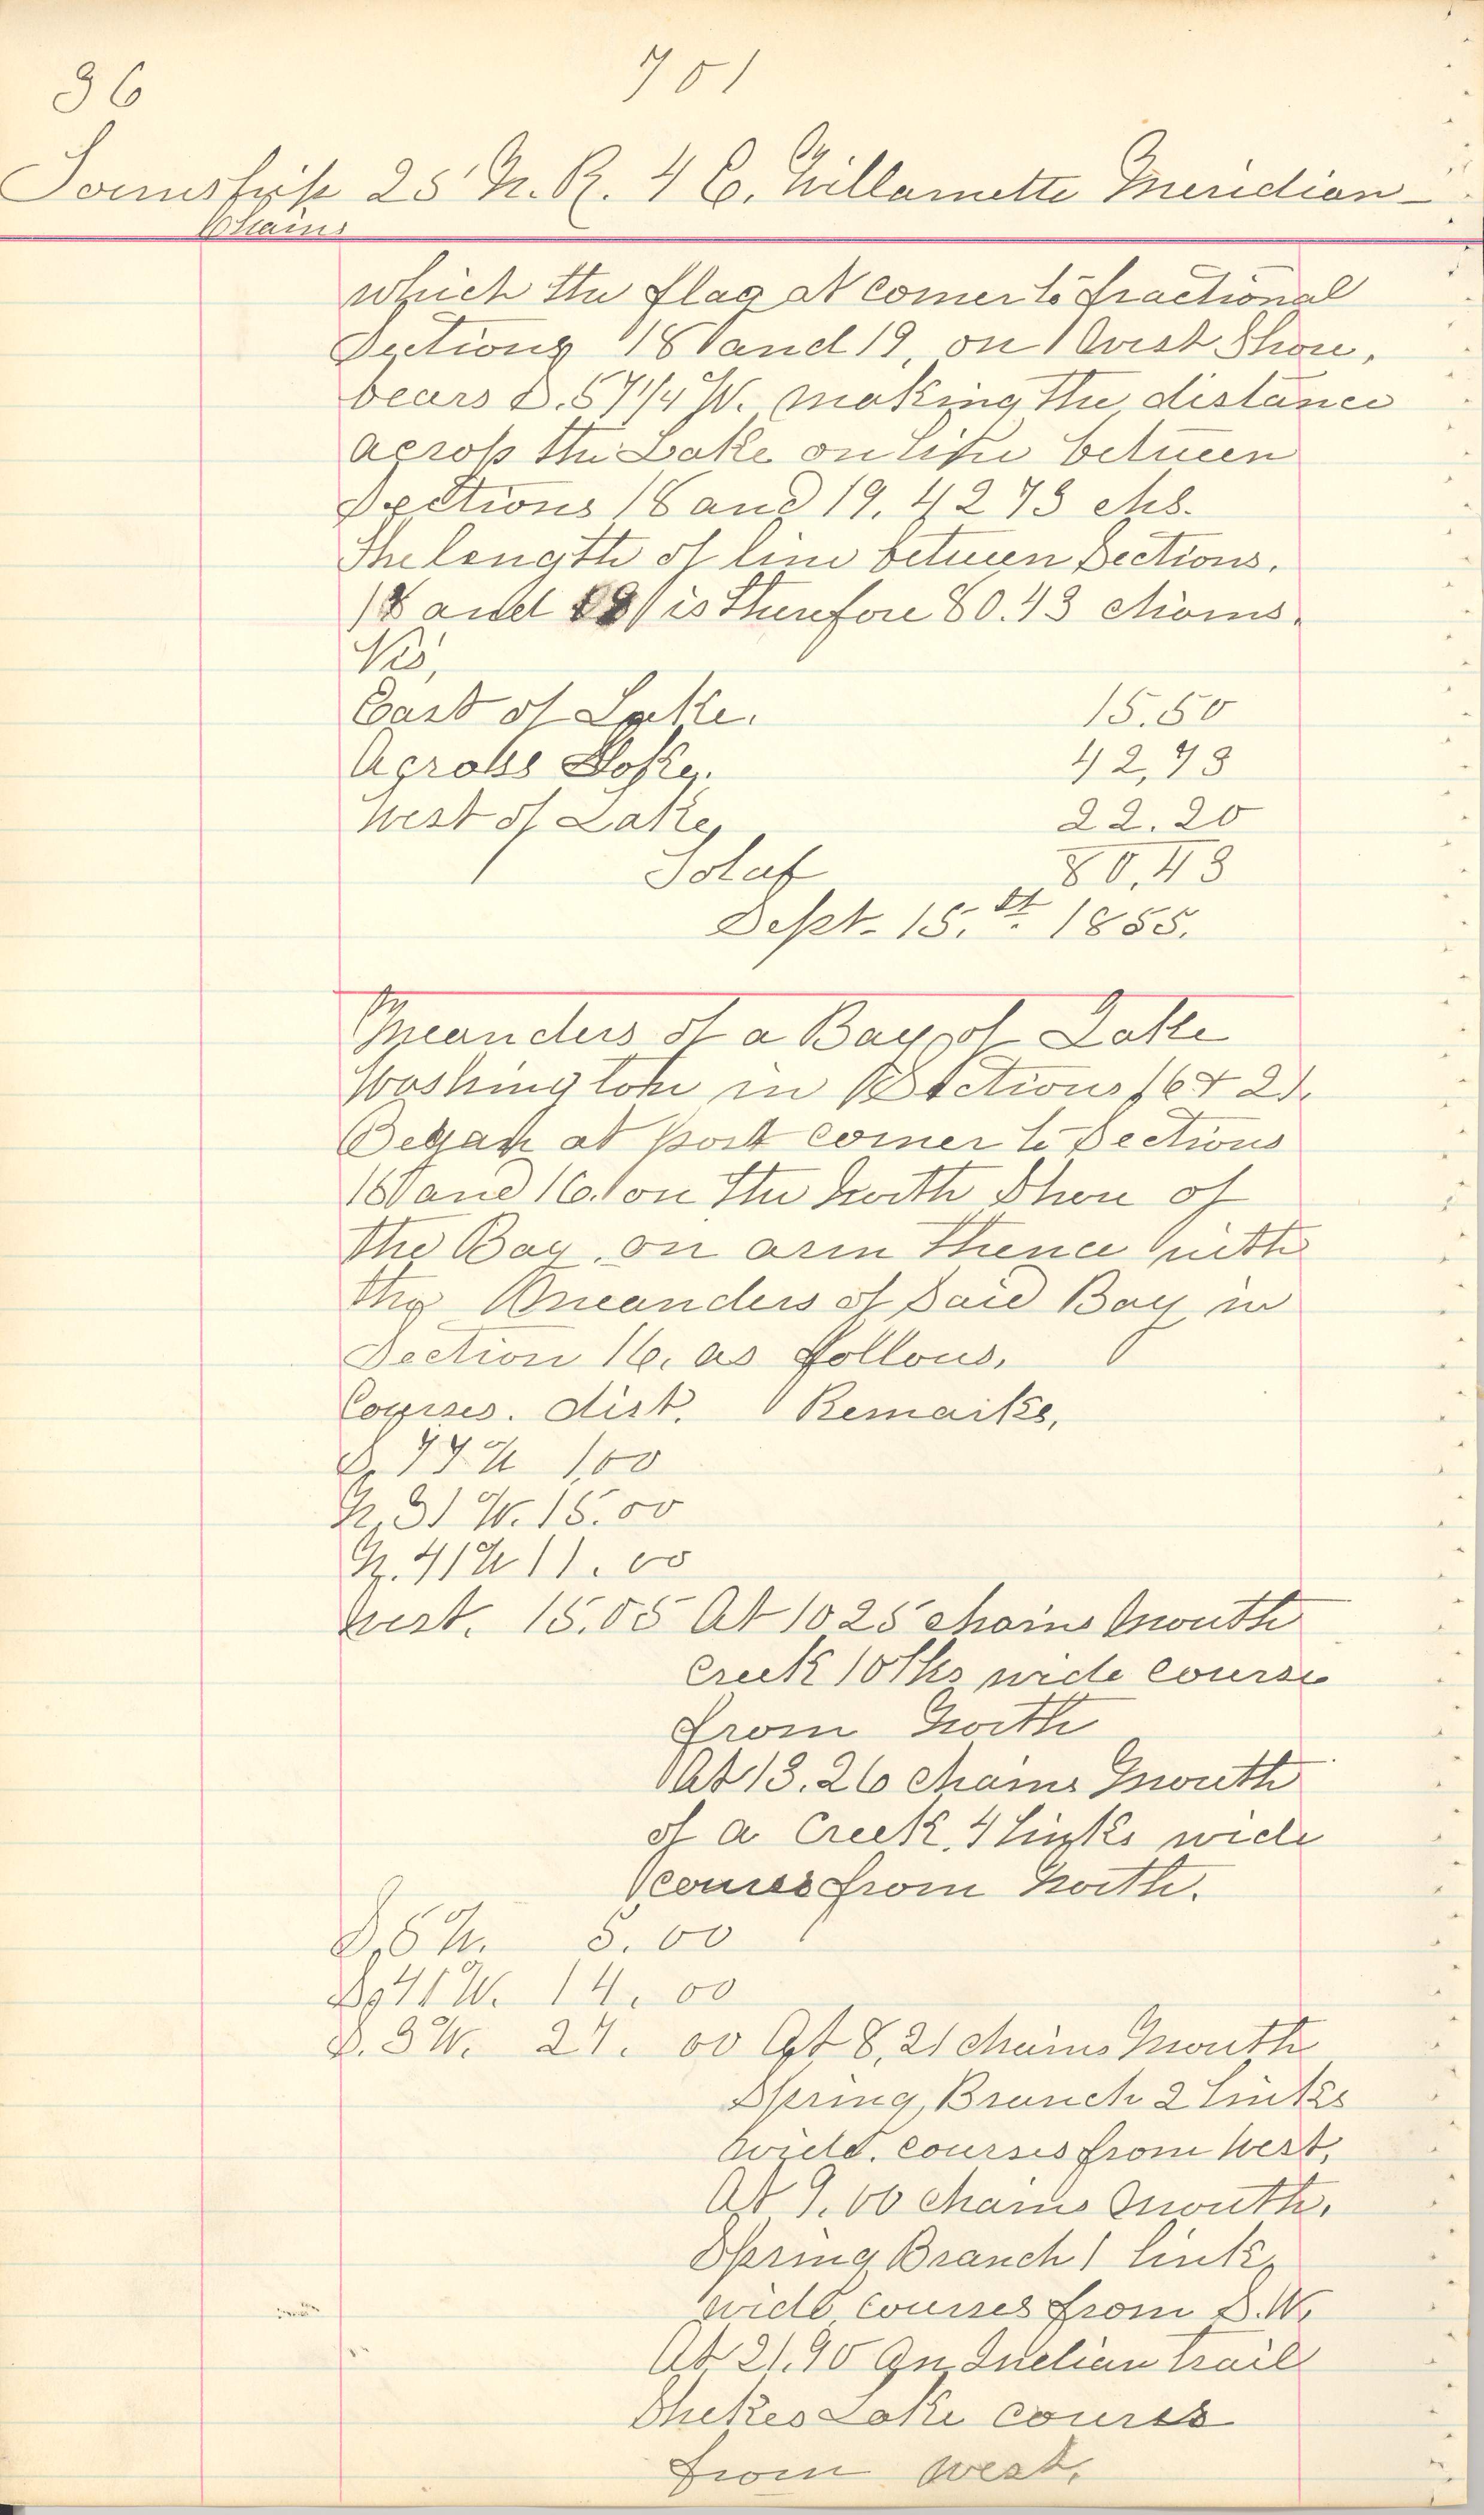 36
701
Township 25 N. R. 4 E. Willamette Meridian
Chains
which the flag at corner to fractional
Sections 18 and 19, on West Shore,
bears S. 57 1/4 W. making the distance
across the Lake on line between
Sections 18 and 19. 42 73 chs.
The length of line between Sections.
18 and 19 is therefore 80.43 chains.
Viz,
East of Lake. 15.50
Across Lake. 42,73
West of Lake, 22.20
Total 80,43
Sept. 15.th 1855.
Meanders of a Bay of Lake
Washington in Sections 16 & 21.
Began at post corner to Sections
15 and 16. on the North Shore of
the Bay, on arm thence with
the Meanders of Said Bay in
Section 16. as follows.
Courses. dist. Remarks,
S. 77 W 1,00
N. 31 W. 15.00
N. 41 W 11.00
West. 15.05 At 10 25 chains Mouth
Creek 10 lks wide course
from North
At 13.26 chains Mouth
of a Creek. 4 links wide
comes from North.
S. 5 W. 5.00
S. 41 W. 14.00
S. 3 W. 27.00 At 8.21 chains Mouth
Spring Branch 2 links
wide. courses from West,
At 9.00 chains Mouth.
Spring Branch 1 link
wide courses from S. W.
At 21.90 An Indian trail
Shekes Lake courses
from West.